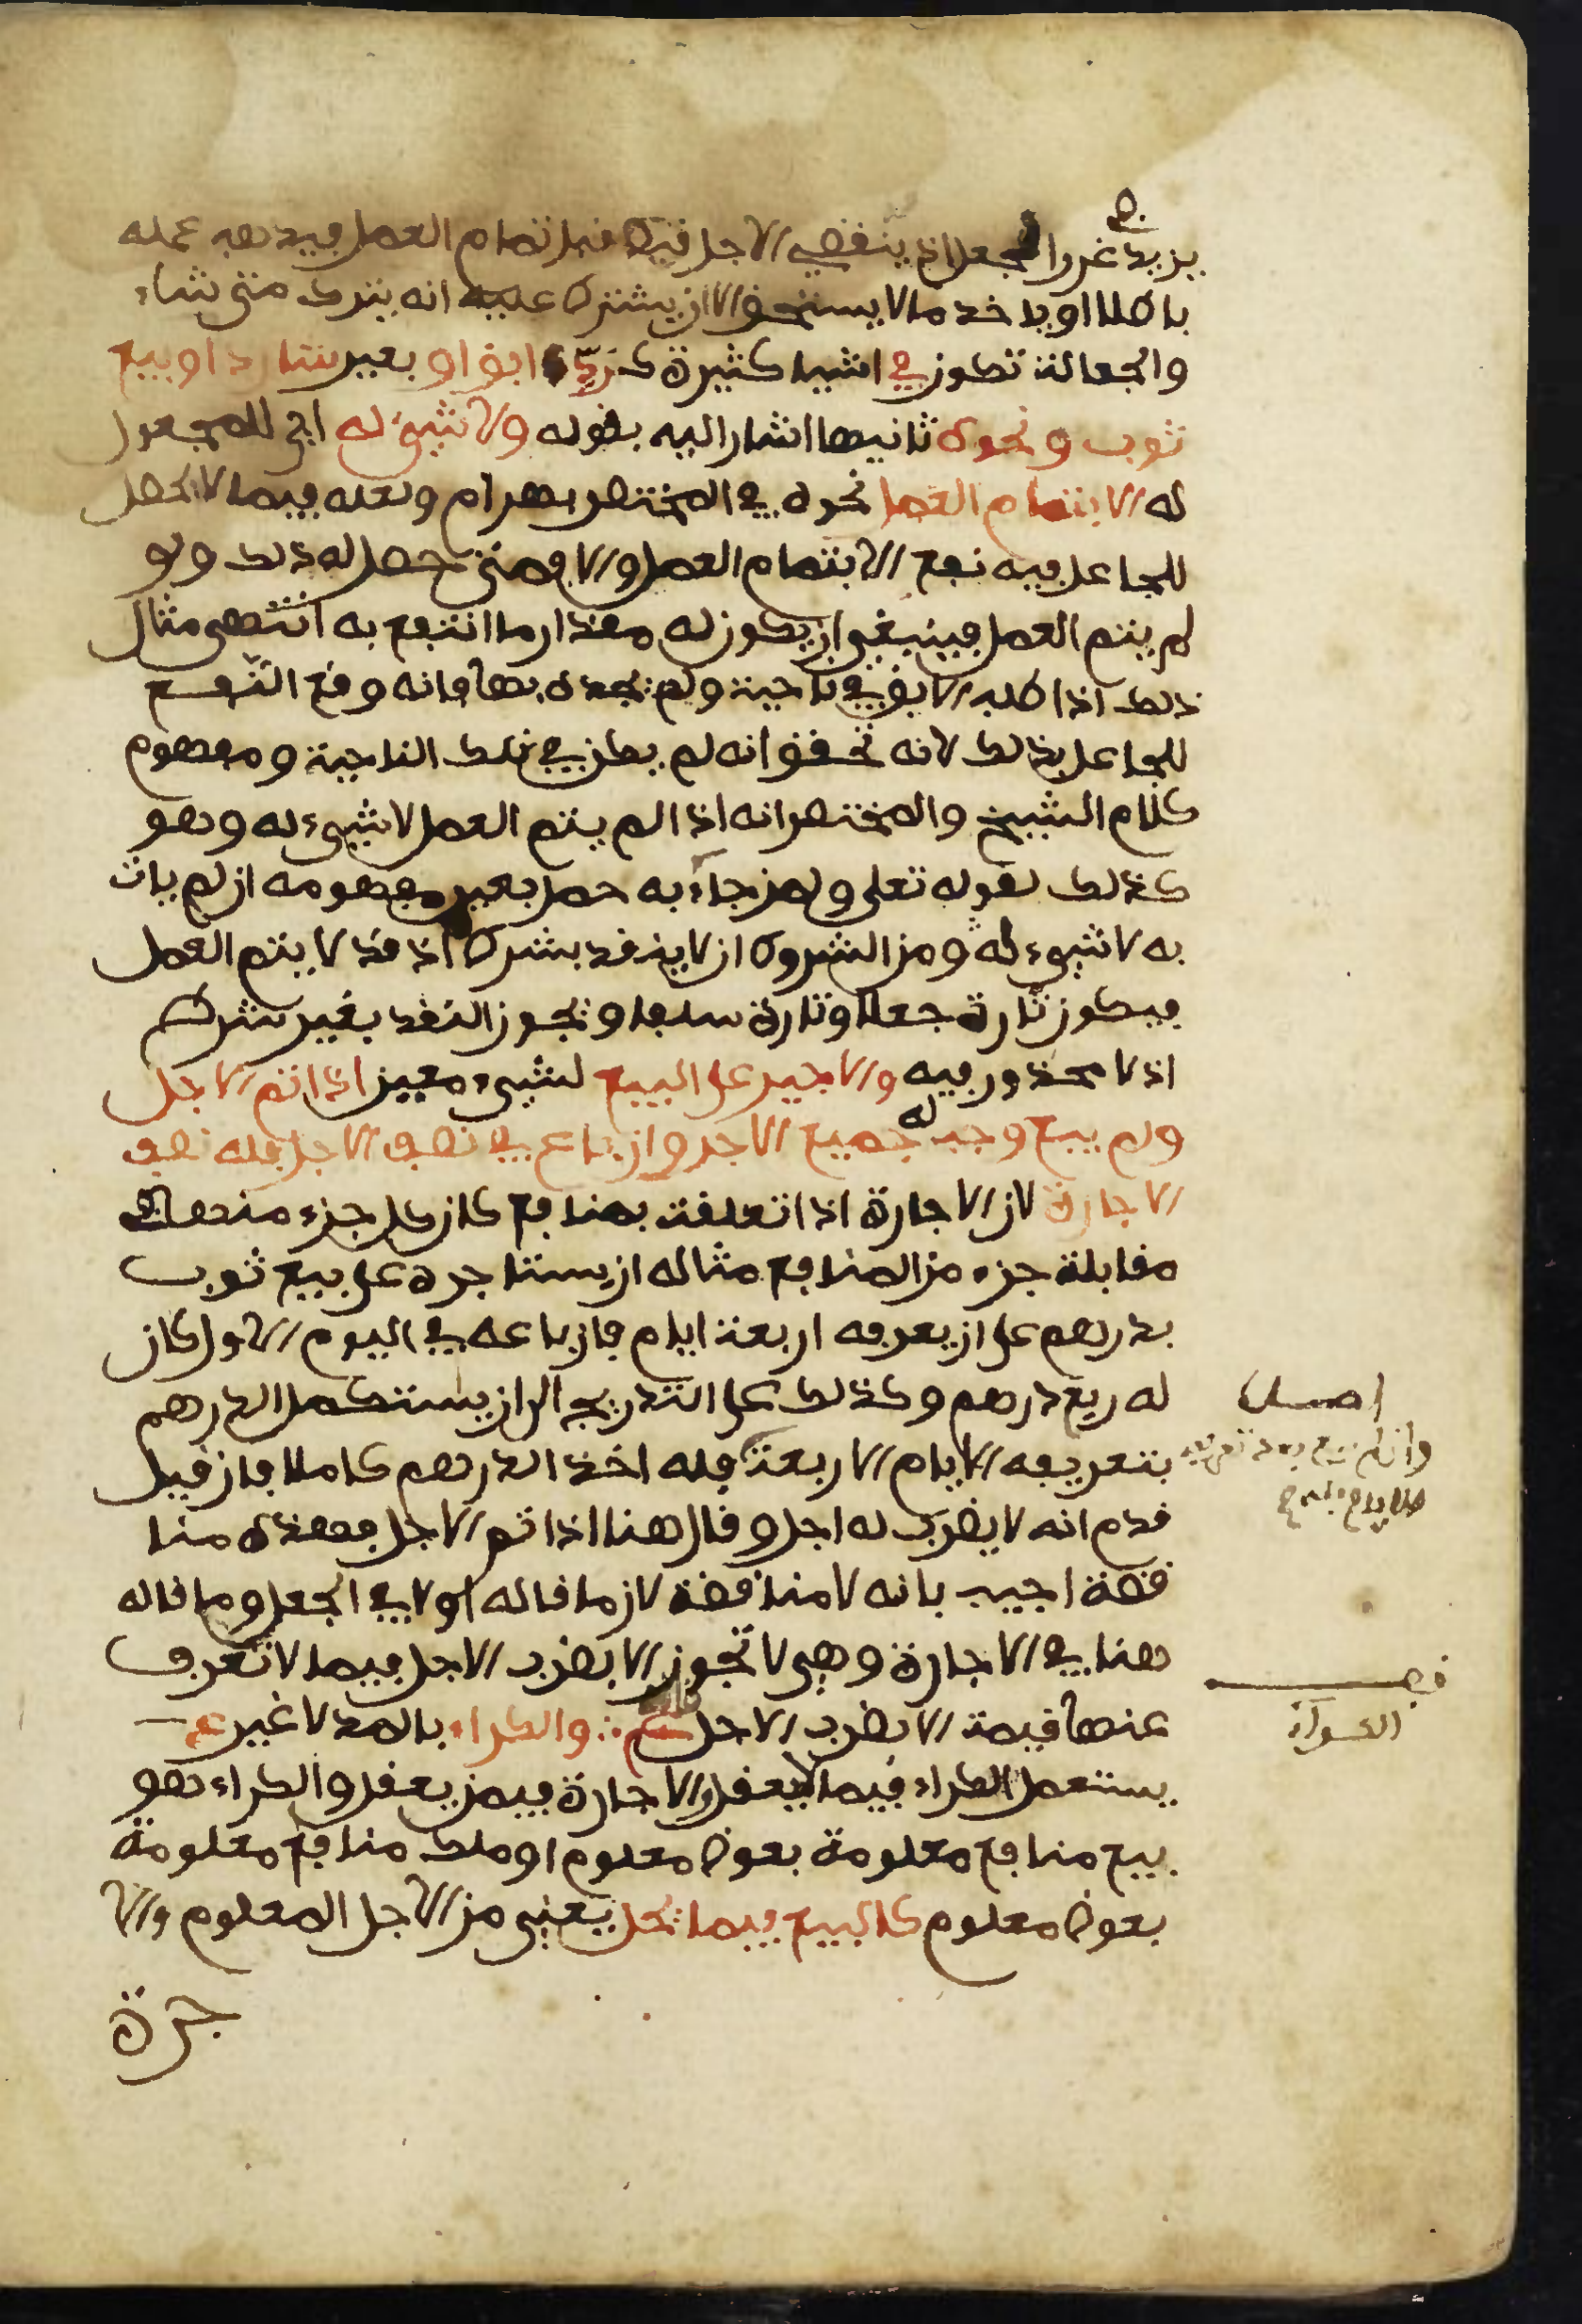 يزيد غررا لجعل اذ ينقضي الاجل قبل تمام العمل فيذهب عمله
باطلا او ياخذ ما لا يستحق الا ان يشترط عليه انه يترك متى شاء
والجعالة تكون في اشيا كثيرة كرد ابق او بعير شارد او بيع
ثوب ونحوه ثانيها اشار اليه بقوله ولا شيء له اي للمجعول
له الا بتمام العمل نحوه في المختصر بهرام ولعله فيما لا يحصل
للجاعل فيه نفع الا بتمام العمل والا فمتى حصل له ذلك ولو
لم يتم العمل فينبغي ان يكون له مقدار ما انتفع به انتهى مثال
ذلك اذا طلب الابق في ناحية ولم يجده بها فانه وقع النفع
للجاعل بذلك لانه تحقق انه لم يكن في تلك الناحية ومفهوم
كلام الشيخ والمختصر انه اذا لم يتم العمل لا شيء له وهو
كذلك لقوله تعلى ولمن جاء به حمل بعير مفهومه ان لم يات
به لا شيء له ومن الشروط ان لا ينقد بشرط اذ قد لا يتم العمل
فيكون تارة جعلا وتارة سلفا ويجوز النقد بغير شرط
اذ لا محذور فيه والاجير على البيع لشيء معين اذا تم الاجل
ولم يبع وجب له جميع الاجر وان باع في نصف الاجل فله نصف
الاجارة لان الاجارة اذا تعلقت بمنافع كان كل جزء منها في
مقابلة جزء من المنافع مثاله ان يستاجره على بيع ثوب
بدرهم على ان يعرفه اربعة ايام فان باعه في اليوم الاول كان
له ربع درهم وكذلك على التدريج الى ان يستكمل الدرهم
بتعريفه الايام الاربعة فله اخذ الدرهم كاملا فان قيل
قدم انه لا يضرب له اجل وقال هنا اذا تم الاجل فهذه منا
قضة اجيب بانه لا مناقضة لان ما قاله اولا في الجعل وما قاله
هنا في الاجارة وهي لا تجوز الا بضرب الاجل فيما لا تعرف
عنها قيمة الا بضرب الاجل والكراء بالمد لا غير
يستعمل الكراء فيما لا يعقل والاجارة فيمن يعقل والكراء هو
بيع منافع معلومة بعوض معلوم او ملك منافع معلومة
بعوض معلوم كالبيع فيما يحل يعني من الاجل المعلوم والا
جرة
اصل
وان لم يبع بعد تعريفه
فصل
الكراء